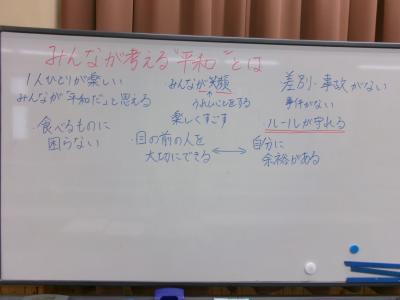 みんなが考える“平和”とは
1人ひとりが楽しい
みんなが「平和だ」と思える
・食べるものに
困らない
みんなが笑顔
うれしいことをする
楽しくすごす
・目の前の人を
大切にできる
差別・事故がない
事件がない
ルールが守れる
自分に
余裕がある